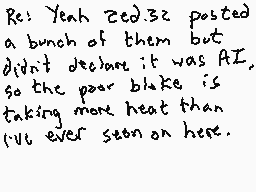 Re: Yeah Zed.32 posted
a bunch of them but
didn't declare it was AI,
so the poor bloke is
taking more heat than
I've ever seen on here.